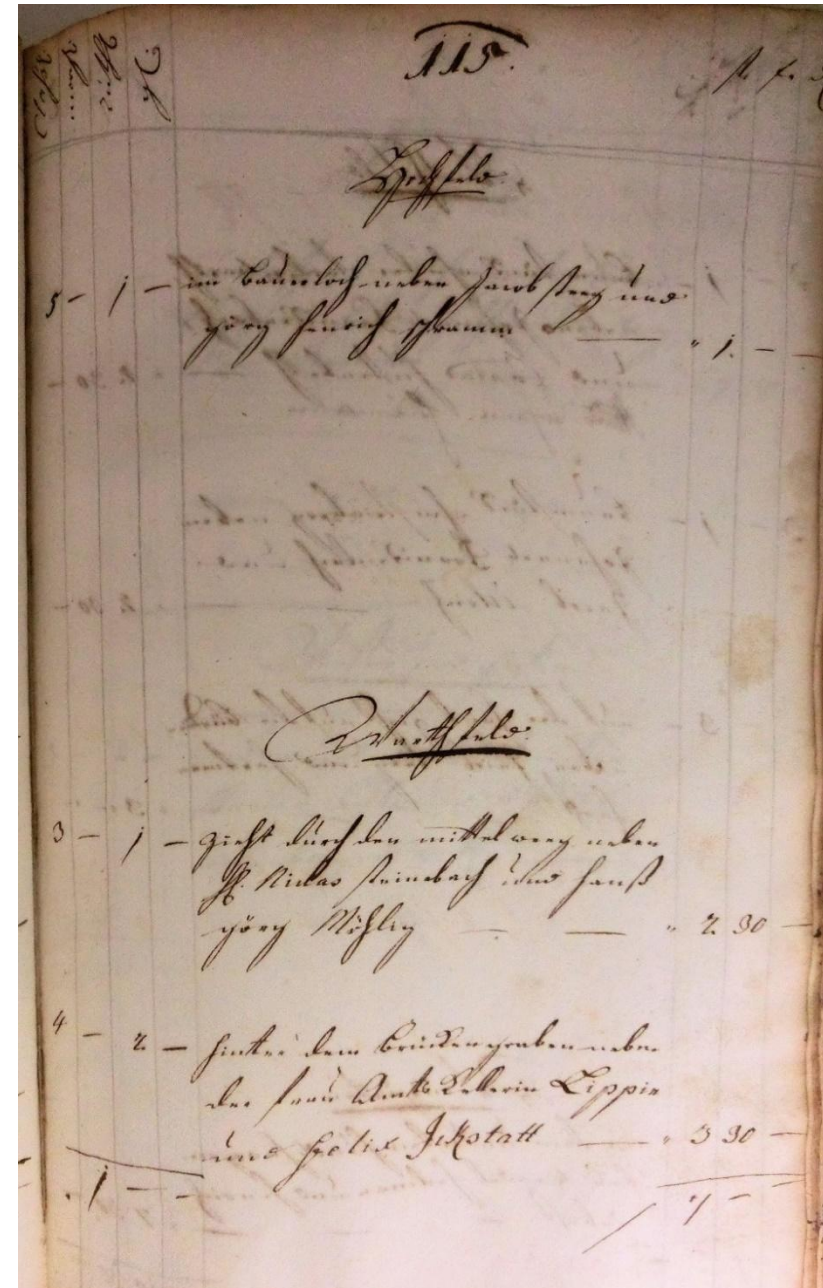 115.
fl. x.
Hochfeld
5 - 1 - im Bauerloch neben Jacob Steeg und
görg Henrich schramm — " 1. -
Warthfeld
3 - 1 - zieht durch den mittelweeg neben
H. Niclas steinebach und Hanß
görg Möhlig — — " 2. 30 -
4 - 2 - hinter dem Brückengraben neben
der frau Amts Kellerin Lippin
und Felix Ickstatt — " 3 30 -
1 - - 7 - -